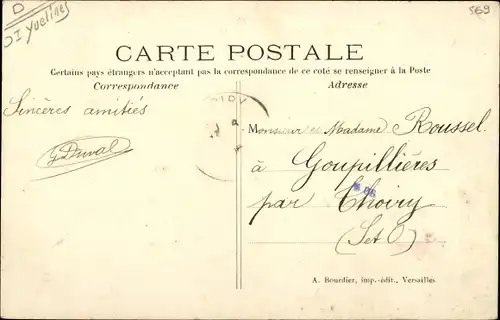 D
DI Yvelines
SE9
CARTE POSTALE
Certains pays étrangers n'acceptant pas la correspondance de ce coté se renseigner à la Poste
Correspondance
Adresse
Sincères amitiés
Duval
Monsieur et Madame Roussel
à Goupillières
par Thoiry
(Set O)
A. Bourdier, imp.-édit., Versailles